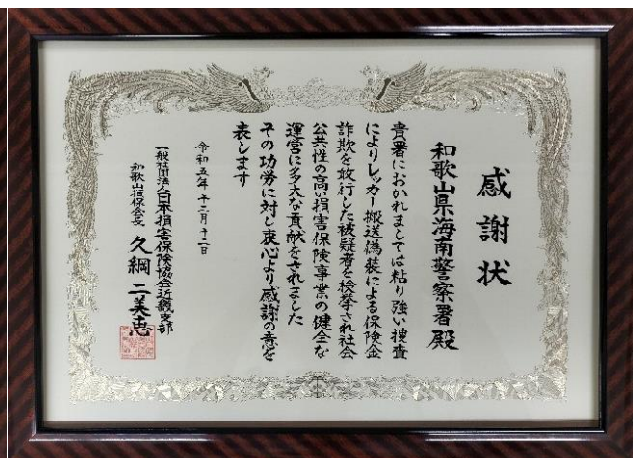 感謝状
和歌山県海南警察署殿
貴署におかれましては粘り強い捜査
によりレッカー搬送偽装による保険金
詐欺を敢行した被疑者を検挙され社会
公共性の高い損害保険事業の健全な
運営に多大な貢献をされました
その功労に対し衷心より感謝の意を
表します
令和五年十二月十二日
一般社団法人日本損害保険協会近畿支部
和歌山損保会会長 久綱二美恵